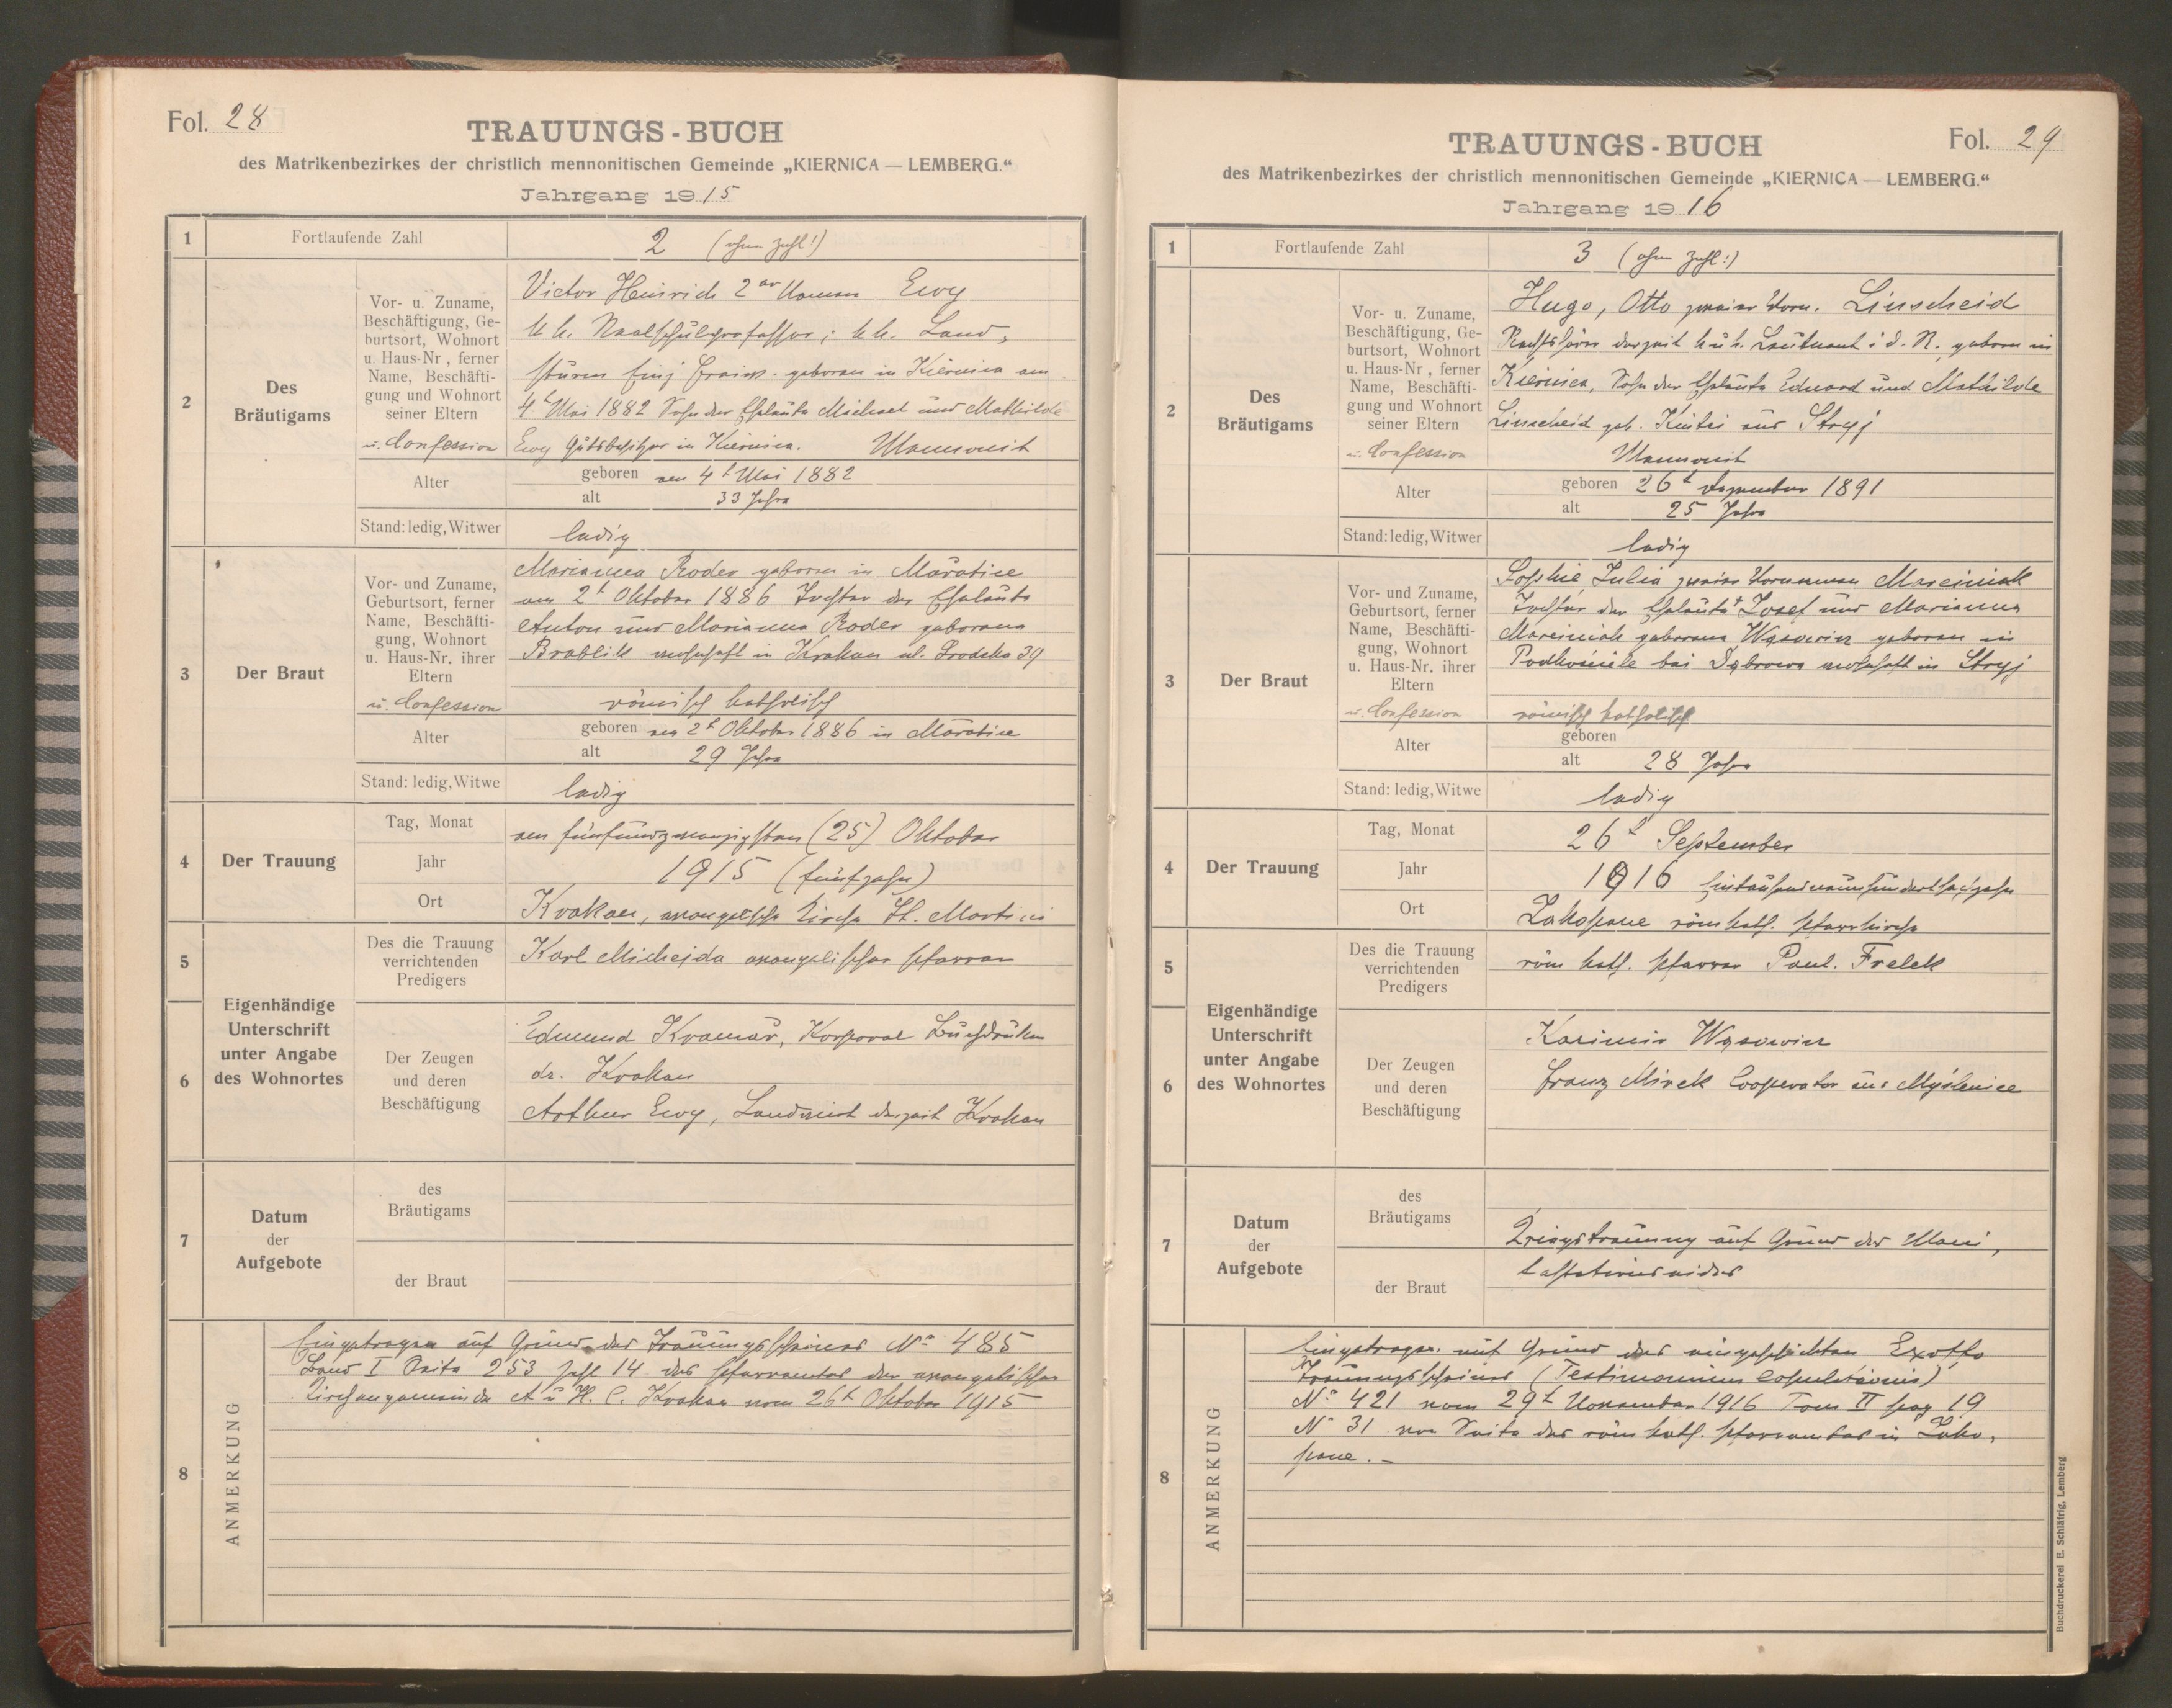 Fol. 28
TRAUUNGS-BUCH
des Matrikenbezirkes der christlich mennonitischen Gemeinde „KIERNICA — LEMBERG.“
Jahrgang 1915
1 Fortlaufende Zahl 2 (ohne Zahl!)
2 Des Bräutigams
Vor- u. Zuname,
Beschäftigung, Ge-
burtsort, Wohnort
u. Haus-Nr, ferner
Name, Beschäfti-
gung und Wohnort
seiner Eltern
u. Confession
Victor Heinrich 2er Namen Ewy
k. k. Realschulprofessor; k. k. Land-
sturm Einj Freiw. geboren in Kiernica am
4t Mai 1882 Sohn der Eheleute Michael und Mathilde
Ewy Gutsbesitzer in Kiernica. Mennonit
Alter geboren den 4t Mai 1882
alt 33 Jahre
Stand: ledig, Witwer ledig
3 Der Braut
Vor- und Zuname,
Geburtsort, ferner
Name, Beschäfti-
gung, Wohnort
u. Haus-Nr. ihrer
Eltern
u. Confession
Marianna Roder geboren in Mařatice
am 2t Oktober 1886 Tochter der Eheleute
Anton und Marianna Roder geborene
Brablik wohnhaft in Krakau ul. Grodzka 39
römisch katholisch
Alter geboren den 2t Oktober 1886 in Mařatice
alt 29 Jahre
Stand: ledig, Witwe ledig
4 Der Trauung
Tag, Monat den fünfundzwanzigsten (25) Oktober
Jahr 1915 (fünfzehn)
Ort Krakau, evangelische Kirche St. Martini
5 Des die Trauung
verrichtenden
Predigers
Karl Michejda evangelischer Pfarrer
6 Eigenhändige
Unterschrift
unter Angabe
des Wohnortes
Der Zeugen
und deren
Beschäftigung
Edmund Kramář, Korporal Buchdrucker
dz. Krakau
Arthur Ewy, Landwirt derzeit Krakau
7 Datum
der
Aufgebote
des
Bräutigams
der Braut
8 ANMERKUNG
Eingetragen auf Grund des Trauungsscheines No 485
Band I Seite 253 Zahl 14 des Pfarramtes der evangelischen
Kirchengemeinde A u H. C. Krakau vom 26t Oktober 1915
Fol. 29
TRAUUNGS-BUCH
des Matrikenbezirkes der christlich mennonitischen Gemeinde „KIERNICA — LEMBERG.“
Jahrgang 1916
1 Fortlaufende Zahl 3 (ohne Zahl!)
2 Des Bräutigams
Vor- u. Zuname,
Beschäftigung, Ge-
burtsort, Wohnort
u. Haus-Nr, ferner
Name, Beschäfti-
gung und Wohnort
seiner Eltern
u. Confession
Hugo, Otto zweiter Vorn. Linscheid
Rechtshörer derzeit k u k. Leutnant i. d. R. geboren in
Kiernica, Sohn der Eheleute Eduard und Mathilde
Linscheid geb. Kintzi aus Stryj
Mennonit
Alter geboren 26t Dezember 1891
alt 25 Jahre
Stand: ledig, Witwer ledig
3 Der Braut
Vor- und Zuname,
Geburtsort, ferner
Name, Beschäfti-
gung, Wohnort
u. Haus-Nr. ihrer
Eltern
u. Confession
Sophie Julia zweiter Vornamen Marciniak
Tochter der Eheleute + Josef und Marianna
Marciniak geborene Wąsowicz geboren in
bei Dąbrowa wohnhaft in Stryj
römisch katholisch
Alter geboren
alt 28 Jahre
Stand: ledig, Witwe ledig
4 Der Trauung
Tag, Monat 26t September
Jahr 1916 Eintausendneunhundertsechzehn
Ort Zakopane röm kath. Pfarrkirche
5 Des die Trauung
verrichtenden
Predigers
röm kath. Pfarrer Paul. Frelek
6 Eigenhändige
Unterschrift
unter Angabe
des Wohnortes
Der Zeugen
und deren
Beschäftigung
Kazimir Wąsowicz
Franz Mirek Cooperator aus Myślenice
7 Datum
der
Aufgebote
des
Bräutigams
der Braut
Kriegstrauung auf Grund des Mani-
festationseides
8 ANMERKUNG
Eingetragen auf Grund des eingeschickten Exoffo
Trauungsscheines (Testimonium copulationis)
No 421 vom 29t November 1916 Tom II pag 19
No 31 von Seite des röm kath. Pfarramtes in Zako-
pane. –
Buchdruckerei E. Schläfrig, Lemberg